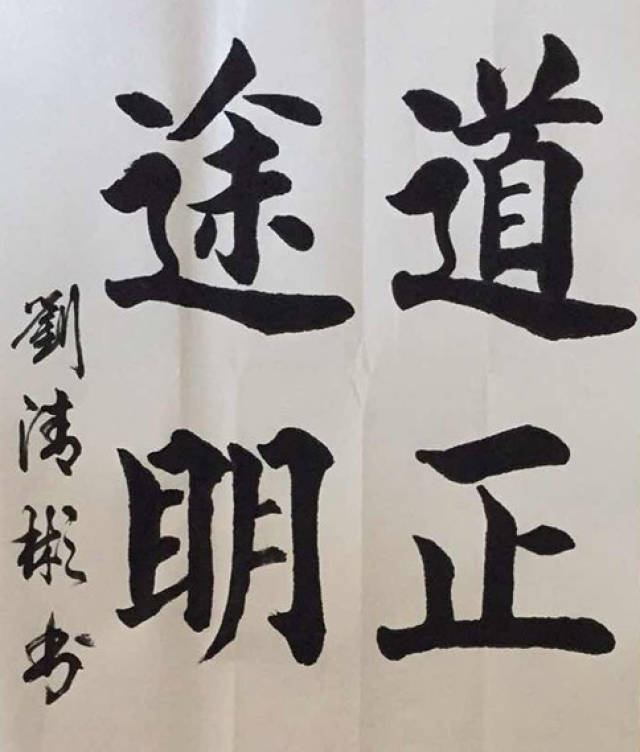 道正
途明
劉清彬书